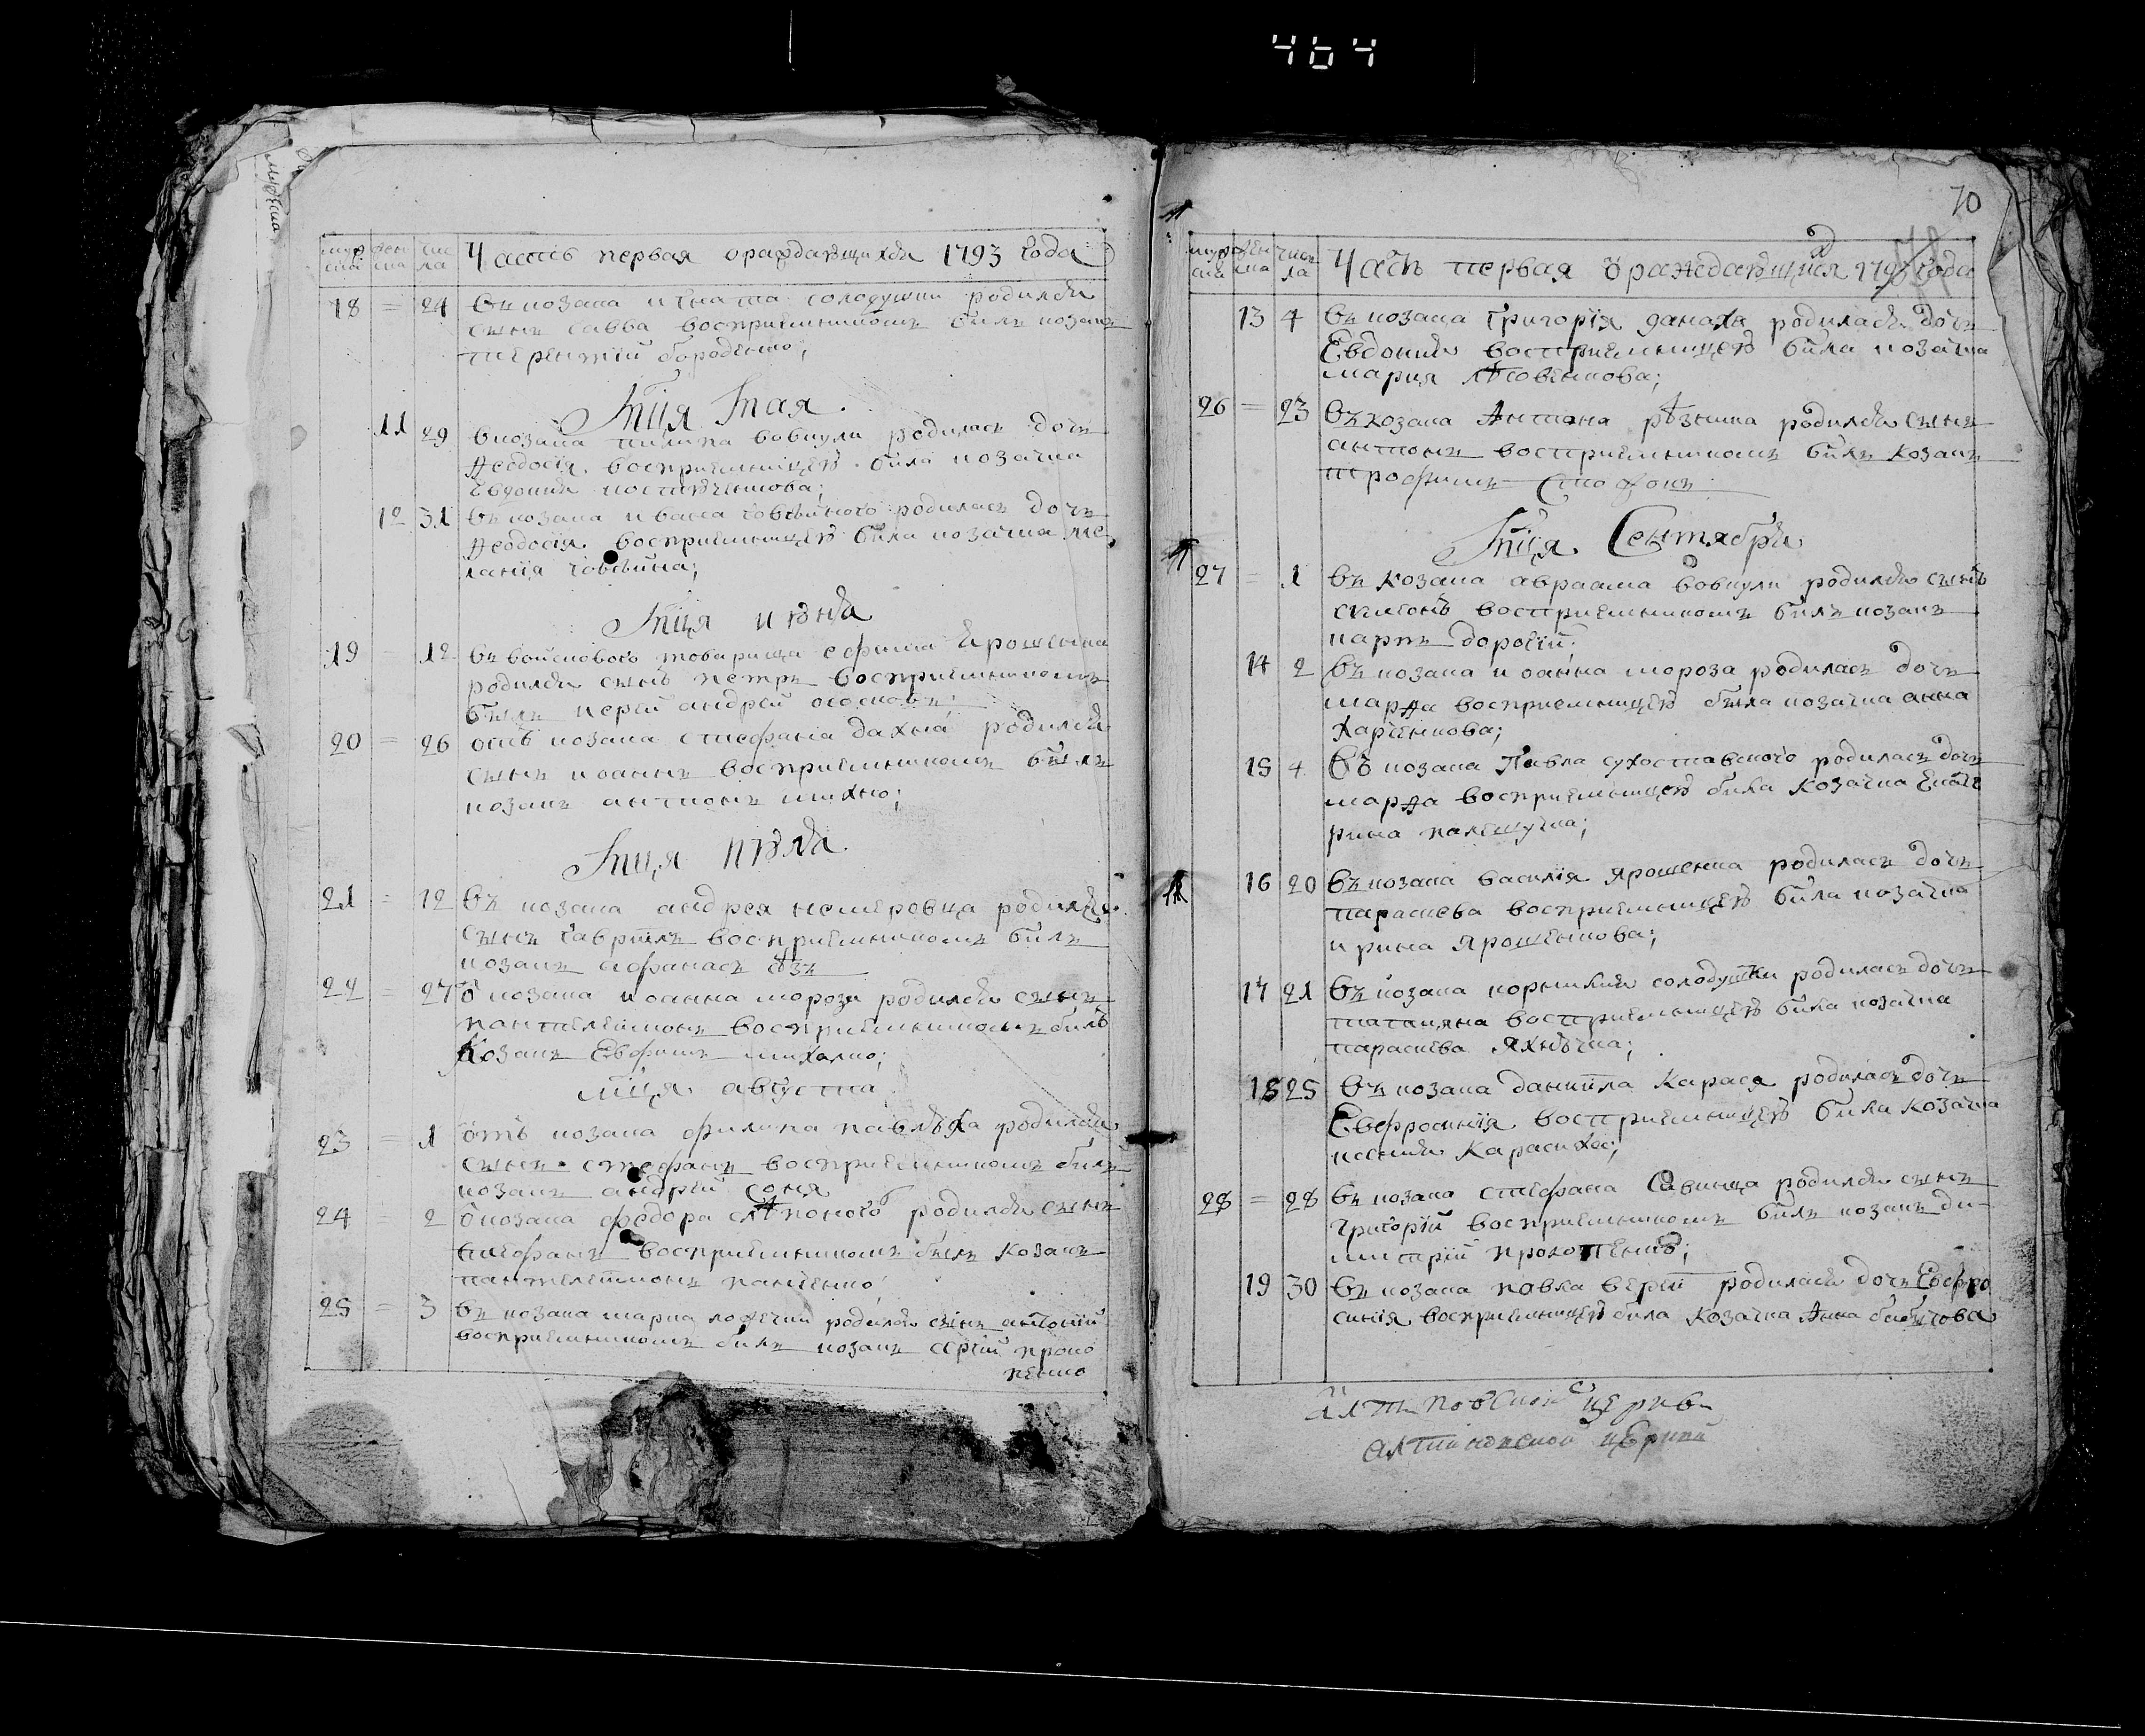 464
70
муж ска жен ска чис ла Часть первая ораждающихся 1793 года
18 = 24 въ козака игната солодушки родился
сынъ савва восприемникомъ былъ козакъ
терентій бороденко;
Мсця Маія.
11 29 в козака пилипа вовкули родилась дочь
Ѳеодосія восприемницею была козачка
Евдокия
12 31 въ козака ивана родилась дочь
Ѳеодосія восприемницею была козачка ме
ланія
Мсця июня
19 = 12 въ войскового товарища ефима Ярошенка
родился сынъ петръ восприемникомъ
былъ иерей андрей
20 = 26 отъ козака стефана дахна родился
сынъ иоаннъ восприемникомъ былъ
козакъ антонъ михно;
Мсця июля
21 = 12 въ козака андрея немеровца родился
сынъ гавріилъ восприемникомъ былъ
козакъ афанасъ
22 = 27 ѿ козака иоанна мороза родился сынъ
пантелеимонъ восприемникомъ былъ
Козакъ Евфимъ михалко;
мсця августа
23 = 1 отъ козака филипа павлѣхи родился
сынъ стефанъ восприемникомъ былъ
козакъ андрей соня
24 = 2 ѿ козака федора слѣпокого родился сынъ
стефанъ восприемникомъ былъ козакъ
пантелеимонъ панченко;
25 = 3 въ козака марка родился сынъ антоній
восприемникомъ былъ козакъ сергій проко
пенко
муж ска жен ска числ ла Часть первая ѡ раждающихся 1793 года
13 4 въ козака григорія данаха родилась дочь
Евдокия восприемницею была козачка
мария лѣсовенкова;
26 = 23 въ козака Антона рѣзника родился сынъ
антонъ восприемникомъ былъ козакъ
трофимъ
Мсця Сентября
27 = 1 въ козака авраама вовкули родился сынъ
симеонъ восприемникомъ былъ козакъ
карпъ дорогій;
14 2 въ козака иоанна мороза родилась дочь
марѳа восприемницею была козачка анна
харченкова;
15 4 въ козака Павла сухоставского родилась дочь
марѳа восприемницею была козачка Екате
рина палещучка;
16 20 въ козака василія ярошенка родилась дочь
параскева восприемницею была козачка
ирина ярошенкова;
17 21 въ козака корнилия солодушки родилась дочь
татияна восприемницею была козачка
параскева Яхнѣчка;
18 25 въ козака даниила карася родилась дочь
Евфросинія восприемницею была козачка
ксения Карасиха;
28 = 28 въ козака стефана савинца родился сынъ
григорій восприемникомъ былъ козакъ ди-
митрій прокопенко;
19 30 въ козака павла верей родилась дочь Евфро
синія восприемницею была козачка Анна
алтиновской церкви
алтиновской церкви